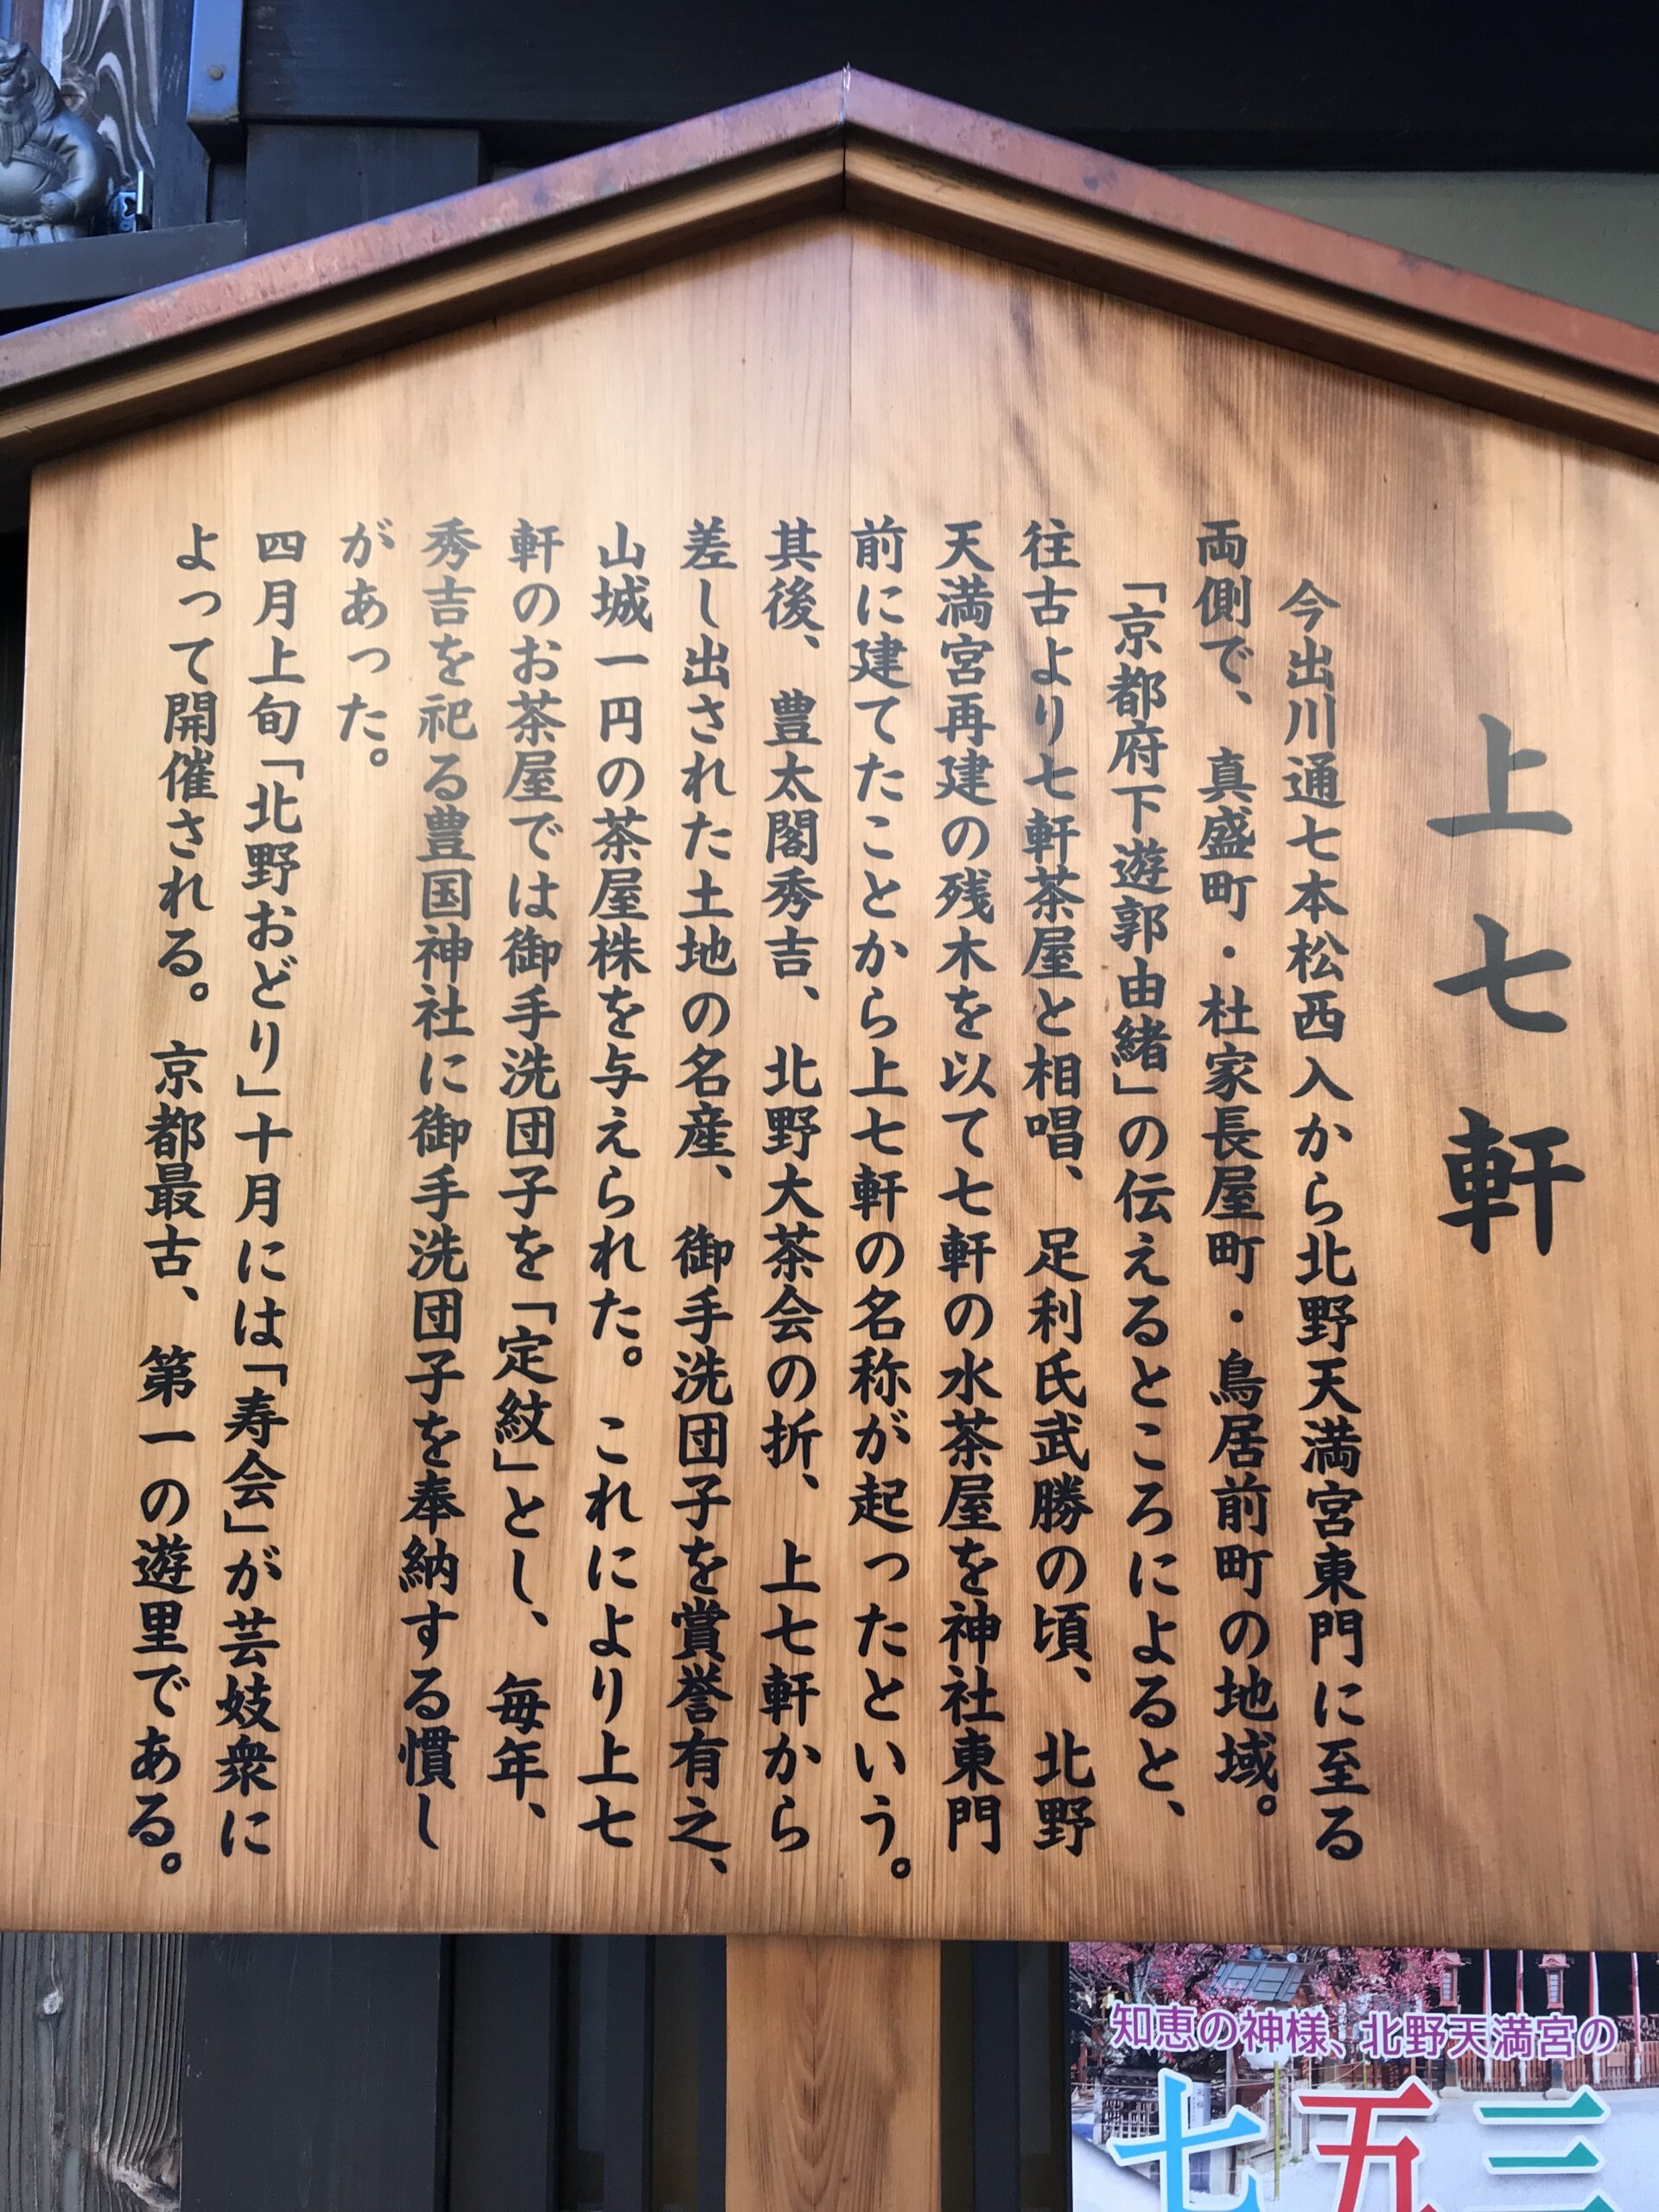 上七軒
今出川通七本松西入から北野天満宮東門に至る
両側で、真盛町・社家長屋町・鳥居前町の地域。
「京都府下遊郭由緒」の伝えるところによると、
往古より七軒茶屋と相唱、足利氏武勝の頃、北野
天満宮再建の残木を以て七軒の水茶屋を神社東門
前に建てたことから上七軒の名称が起ったという。
其後、豊太閤秀吉、北野大茶会の折、上七軒から
差し出された土地の名産、御手洗団子を賞誉有之、
山城一円の茶屋株を与えられた。これにより上七
軒のお茶屋では御手洗団子を「定紋」とし、毎年、
秀吉を祀る豊国神社に御手洗団子を奉納する慣し
があった。
四月上旬「北野おどり」十月には「寿会」が芸妓衆に
よって開催される。京都最古、第一の遊里である。
知恵の神様、北野天満宮の
七五三